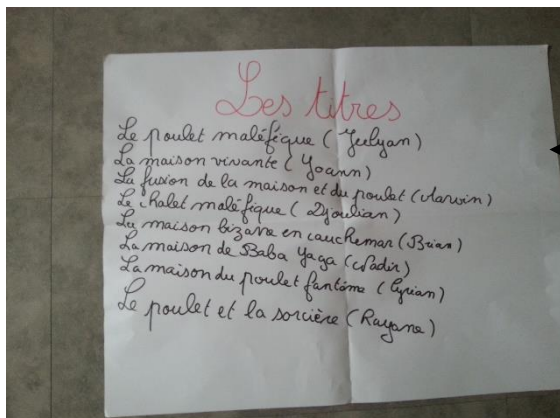 Les titres
Le poulet maléfique (Julyan)
La maison vivante (Yoann)
La fusion de la maison et du poulet (Marvin)
Le chalet maléfique (Djoulian)
La maison bizarre en cauchemar (Brian)
La maison de Baba Yaga (Nadir)
La maison du poulet fantôme (Cyrian)
Le poulet et la sorcière (Rayane)